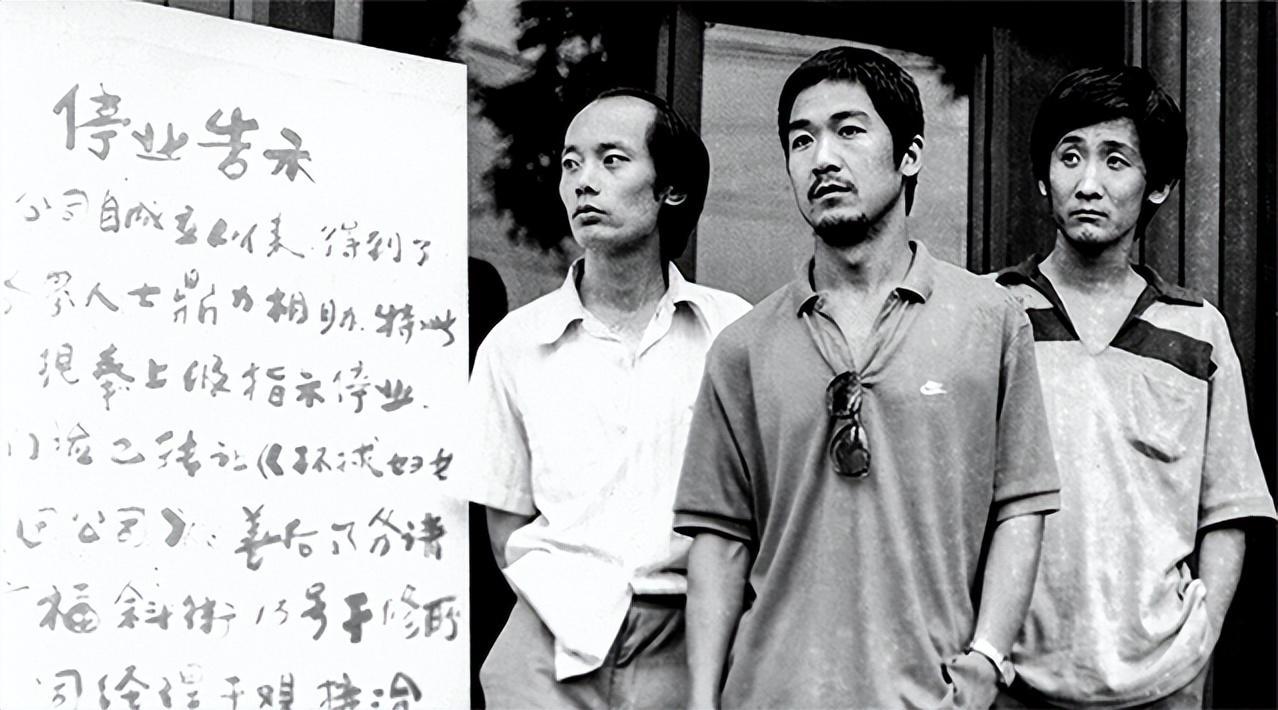 停业告示
公司自成立以来.得到了
各界人士鼎力相助.特此
現奉上级指示停业.
已转让《环球妇女
公司》.善后 请
福斜街15号
司经理于观接洽